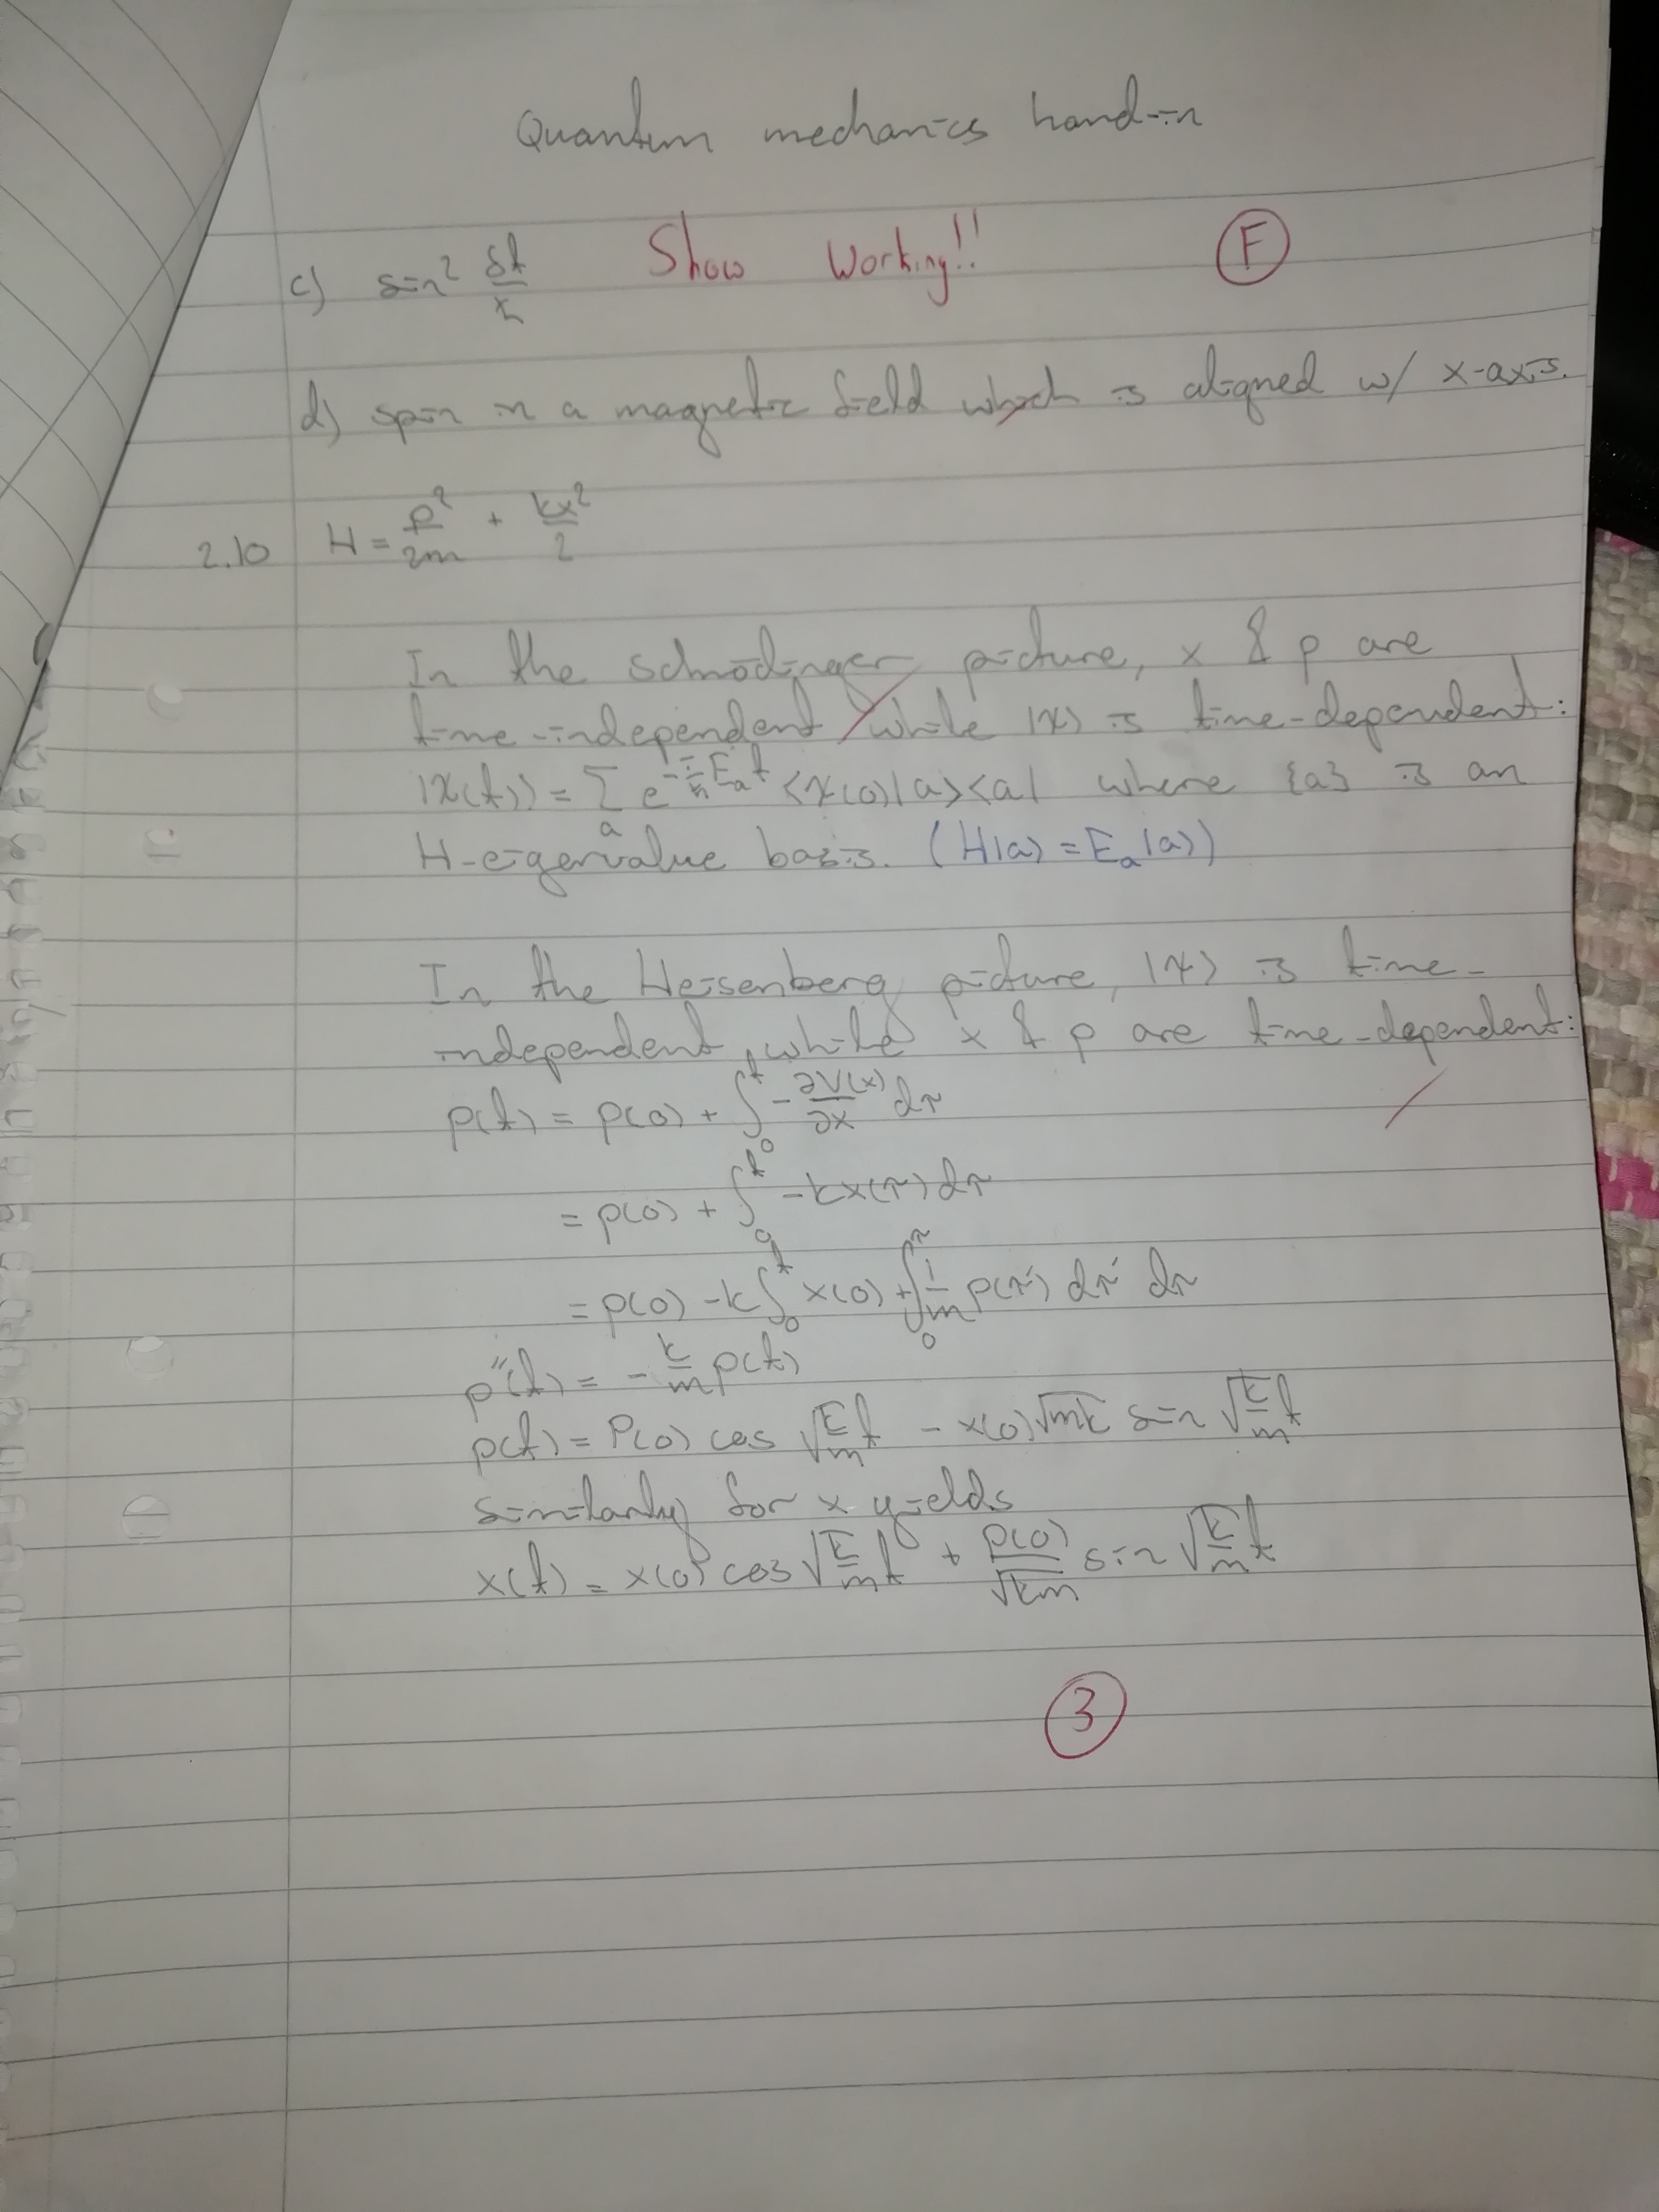 Quantum mechanics hand-in
c) sin² δt/ħ Show Working!! F
d) spin in a magnetic field which is aligned w/ x-axis.
2.10 H = p²/2m + kx²/2
In the schrödinger picture, x & p are
time-independent while |χ⟩ is time-dependent:
|χ(t)⟩ = Σ_a e^(-i/ħ E_a t) <χ(0)|a><a| where {a} is an
H-eigenvalue basis. (H|a⟩ = E_a|a⟩)
In the Heisenberg picture, |χ⟩ is time-
independent, while x & p are time-dependent:
p(t) = p(0) + ∫₀ᵗ -∂V(x)/∂x dτ
= p(0) + ∫₀ᵗ -kx(τ) dτ
= p(0) - k∫₀ᵗ x(0) + ∫₀^τ 1/m p(τ') dτ' dτ
p''(t) = - k/m p(t)
p(t) = P(0) cos √(k/m) t - x(0)√mk sin √(k/m) t
similarly for x yields
x(t) = x(0) cos √(k/m) t + p(0)/√km sin √(k/m) t
3